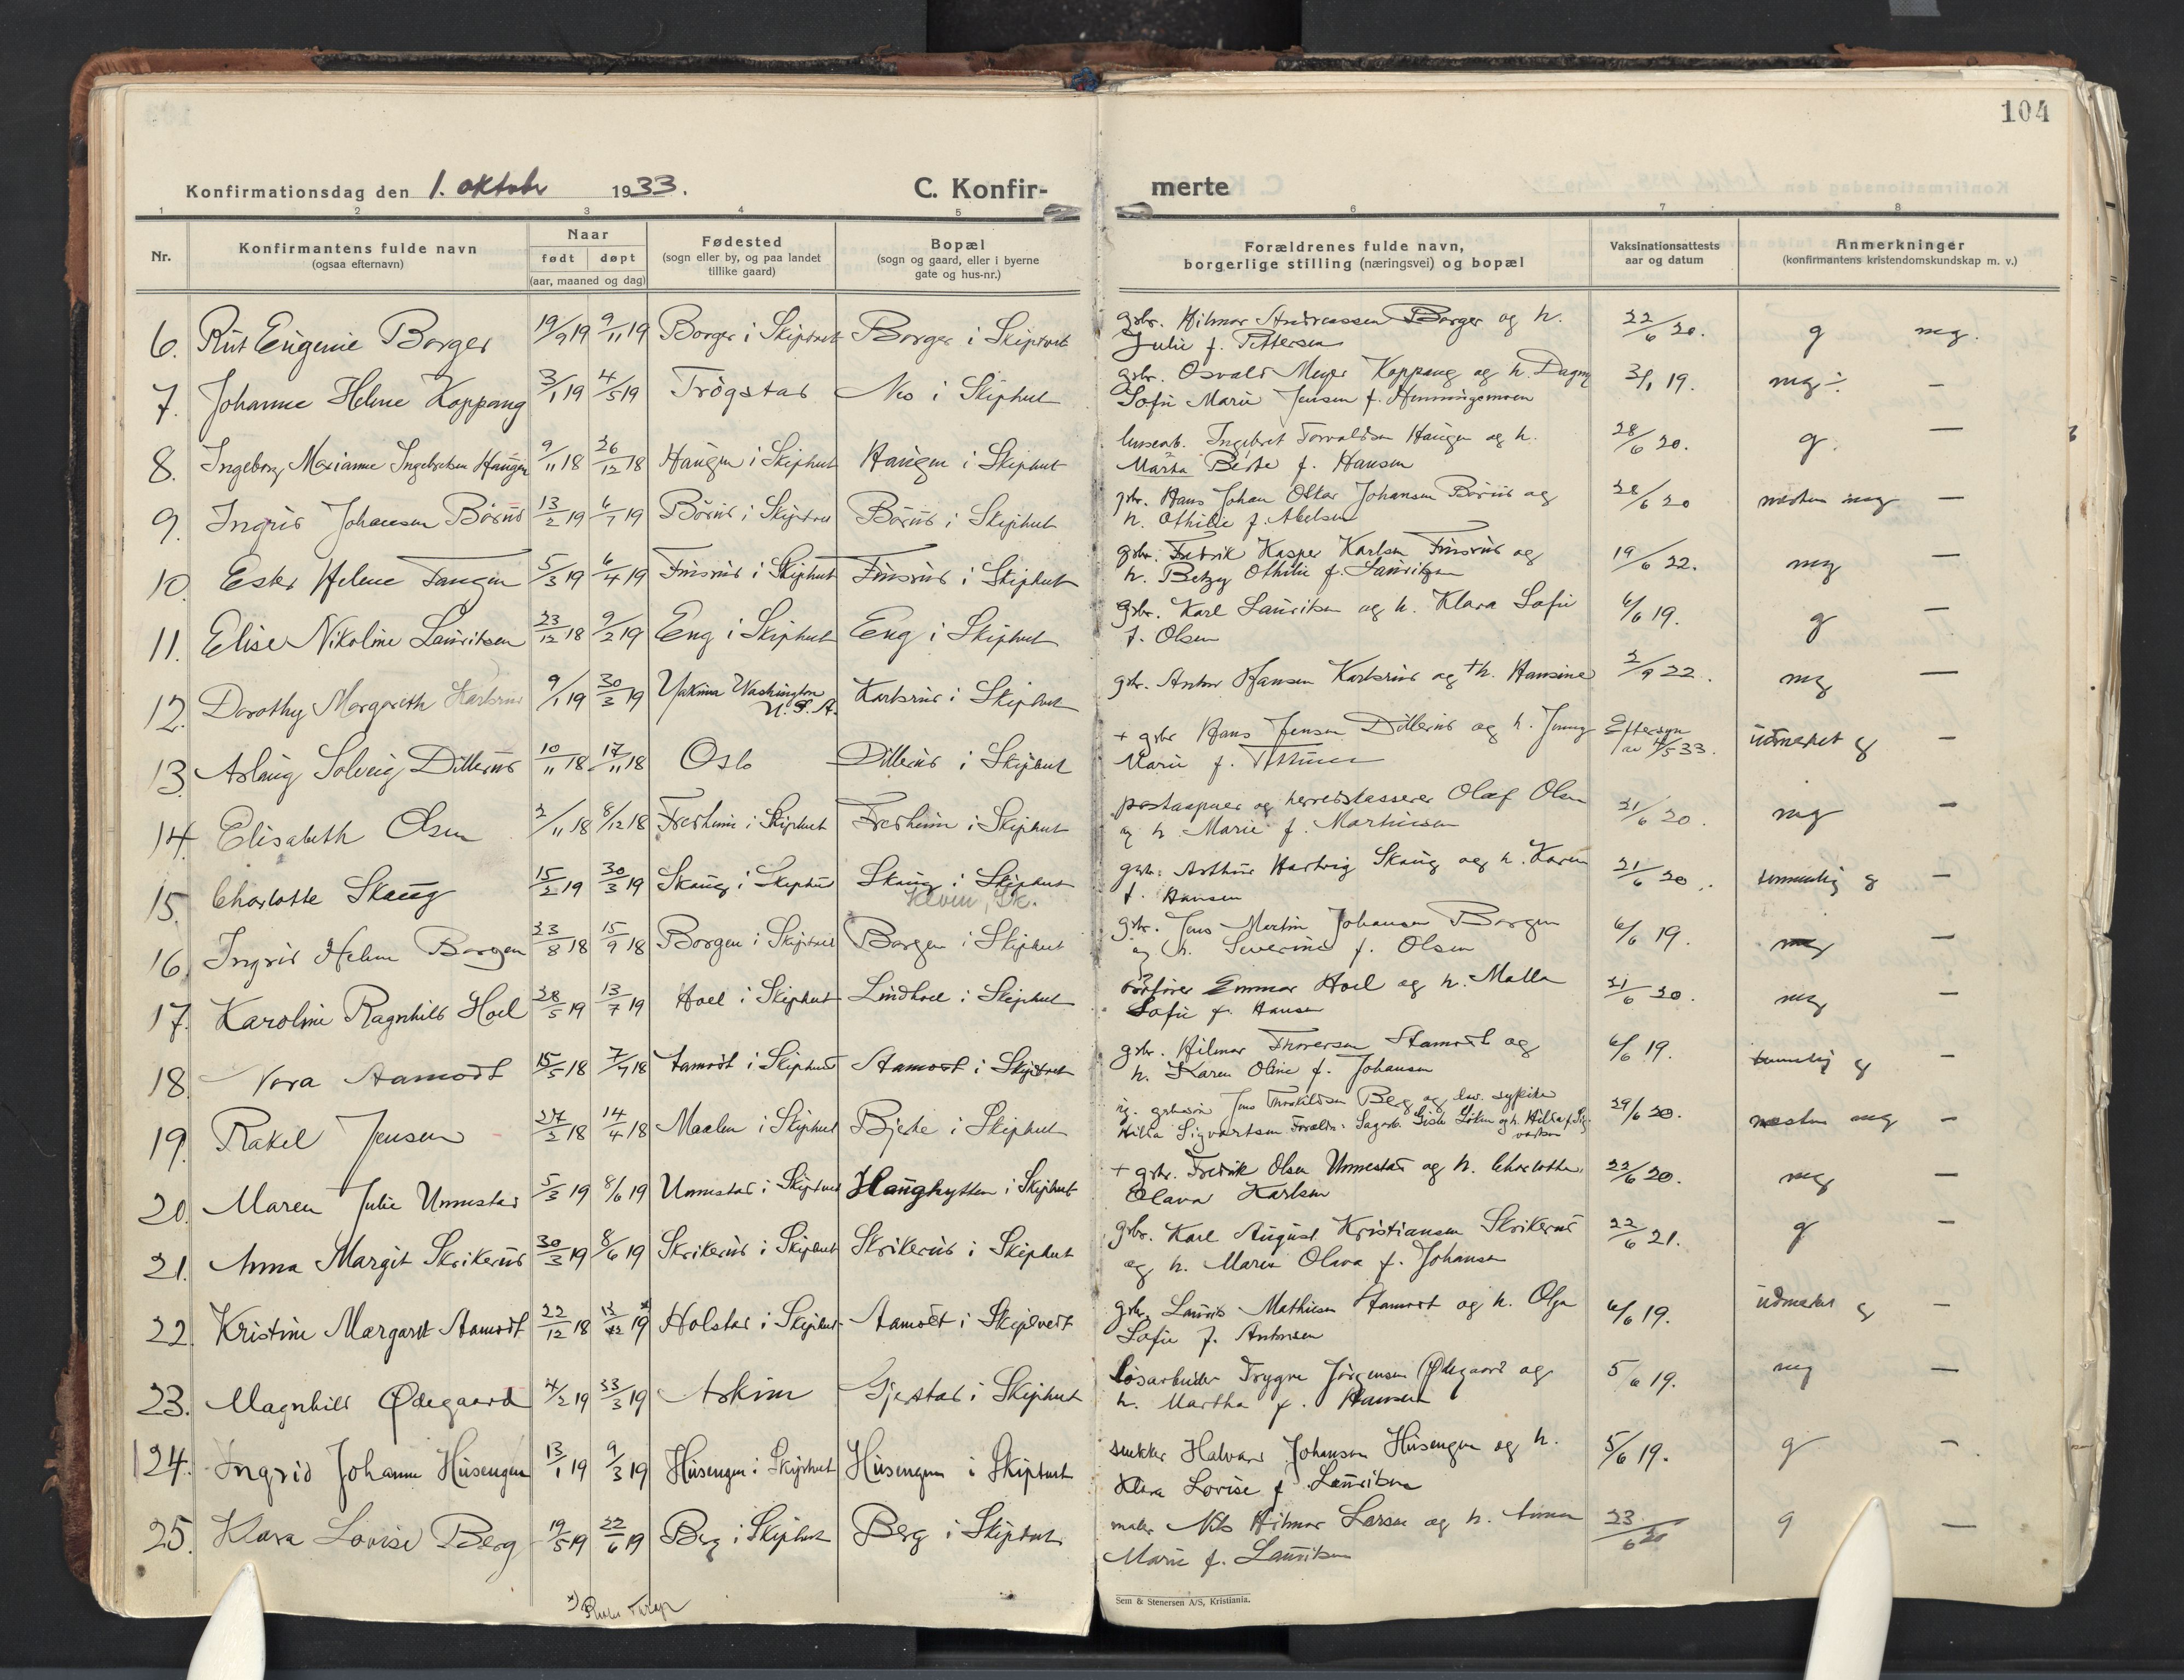 104
Konfirmationsdag den 1. oktobr 1933.
C. Konfir-
merte
1 2 3 4 5 6 7 8
Nr.
Konfirmantens fulde navn
(ogsaa efternavn)
Naar
født døpt
(aar, maaned og dag)
Fødested
(sogn eller by, og paa landet
tillike gaard)
Bopæl
(sogn og gaard, eller i byerne
gate og hus-nr.)
Forældrenes fulde navn,
borgerlige stilling (næringsvei) og bopæl
Vaksinationsattests
aar og datum
Anmerkninger
(konfirmantens kristendomskundskap m. v.)
6. Rut Eugenie Borger 19/9 19 9/11 19 Borger i Skiptvet Borger i Skiptvet grbr. Hilmar Andreassen Borger og h. 22/6 20. g mg.
Julie f. Pettersen
7. Johanne Helene Koppang 3/1 19 4/5 19 Trøgstad Nes i Skiptvet grbr. Osvald Meyer Koppang og h. Dagny 3/1 19. mg ÷ —
Sofie Marie Jensen f. Henningsmoen
8. Ingeborg Marianne Ingebretsen Haugen 9/11 18 26/12 18 Haugen i Skiptvet Haugen i Skiptvet Ingebret Torvaldsen Haugen og h. 28/6 20. g. —
Marta Berte f. Hansen
9. Ingrid Johansen Børud 13/2 19 6/7 19 Børud i Skiptvet Børud i Skiptvet gbr. Hans Johan Oskar Johansen Børud og 28/6 20 nesten mg —
h. Othilie f. Abelsen
10. Ester Helene Tangen 5/3 19 6/4 19 Finsrud i Skiptvet Finsrud i Skiptvet grbr. Fredrik Kasper Karlsen Finsrud og 19/6 22. mg —
h. Betzy Othilie f. Lauritzen
11. Elise Nikoline Lauritsen 23/12 18 9/2 19 Eng i Skiptvet Eng i Skiptvet grbr. Karl Lauritsen og h. Klara Sofie 6/6 19. g —
f. Olsen
12. Dorothy Margareth Karlsrud 9/1 19 30/3 19 Yakima Washington Karlsrud i Skiptvet gbr. Anton Hansen Karlsrud og +h. Hansine 2/9 22. mg —
U.S.A.
13. Aslaug Solveig Dillerud 10/11 18 17/11 18 Oslo Dillerud i Skiptvet + grbr Hans Jensen Dillerud og h. Jenny Eftersyn udmerket g —
Marie f. av 4/5 33.
14. Elisabeth Olsen 2/11 18 8/12 18 Fredheim i Skiptvet Fredheim i Skiptvet postaapner og herredskasserer Olaf Olsen 21/6 20. mg —
og h Marie f. Martinsen
15. Charlotte Skaug 15/2 19 30/3 19 Skaug i Skiptvet Skaug i Skiptvet grbr. Arthur Hartvig Skaug og h. Karen 21/6 20. temmelig g —
Sk. f. Hansen
16. Ingrid Helene Borgen 23/8 18 15/9 18 Borgen i Skiptvet Borgen i Skiptvet grbr. Jens Martin Johansen Borgen 6/6 19. mg —
og h. Severine f. Olsen
17. Karoline Ragnhild Hoel 28/5 19 13/7 19 Hoel i Skiptvet Lindhoel i Skiptvet Emmar Hoel og h. Malla 21/6 20. mg —
Sofie f. Hansen
18. Nora Aamodt 15/5 18 7/7 18 Aamodt i Skiptvet Aamodt i Skiptvet grbr. Hilmar Thoresen Aamodt og 6/6 19. temmelig g —
h. Karen Oline f. Johansen
19. Rakel Jensen 27/2 18 14/4 18 Maalen i Skiptvet Bjerke i Skiptvet ug. grbrsøn Jens Thorkildsen Berg og sypike 29/6 20. nesten mg —
Hilda Sigvartsen
20. Maren Julie Unnestad 5/3 19 8/6 19 Unnestad i Skiptvet Haughytten i Skiptvet + grbr. Fredrik Olsen Unnestad og h. Charlotte 22/6 20. mg —
Olava Karlsen
21. Anna Margit Skrikerud 30/3 19 8/6 19 Skrikerud i Skiptvet Skrikerud i Skiptvet grbr. Karl August Kristiansen Skrikerud 22/6 21. g —
og h. Maren Olava f. Johansen
22. Kristine Margaret Aamodt 22/12 18 19 Holstad i Skiptvet Aamodt i Skiptvedt grbr. Laurits Mathisen Aamodt og h. Olga 6/6 19. udmerket g —
Sofie f. Antonsen
23. Magnhild Ødegaard 4/2 19 23/3 19 Askim Gjerstad i Skiptvet løsarbeider Trygve Jørgensen Ødegaard og 5/6 19. mg —
h. Martha f. Hansen
24. Ingrid Johanne Husengen 13/1 19 9/3 19 Husengen i Skiptvet Husengen i Skiptvet snekker Halvard Johansen Husengen og h. 5/6 19. g —
Klara Lovise f Lauritsen
25. Klara Lovise Berg 19/5 19 22/6 19 Berg i Skiptvet Berg i Skiptvet maler Nils Hilmar Larsen og h. Anna 23/6 20 g —
Marie f. Lauritsen
Sem & Stenersen A/S, Kristiania.